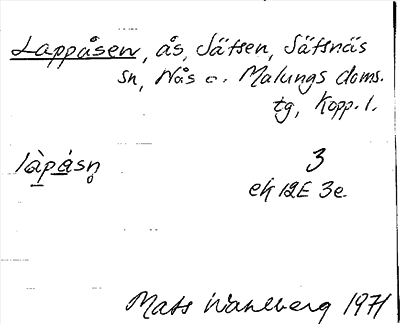 Lappåsen, ås, Sätsen, Sätsnäs
sn, Nås o. Malungs doms.
tg, Kopp. l.
làpásn̥ 3
ek 12E 3e.
Mats Wahlberg 1971